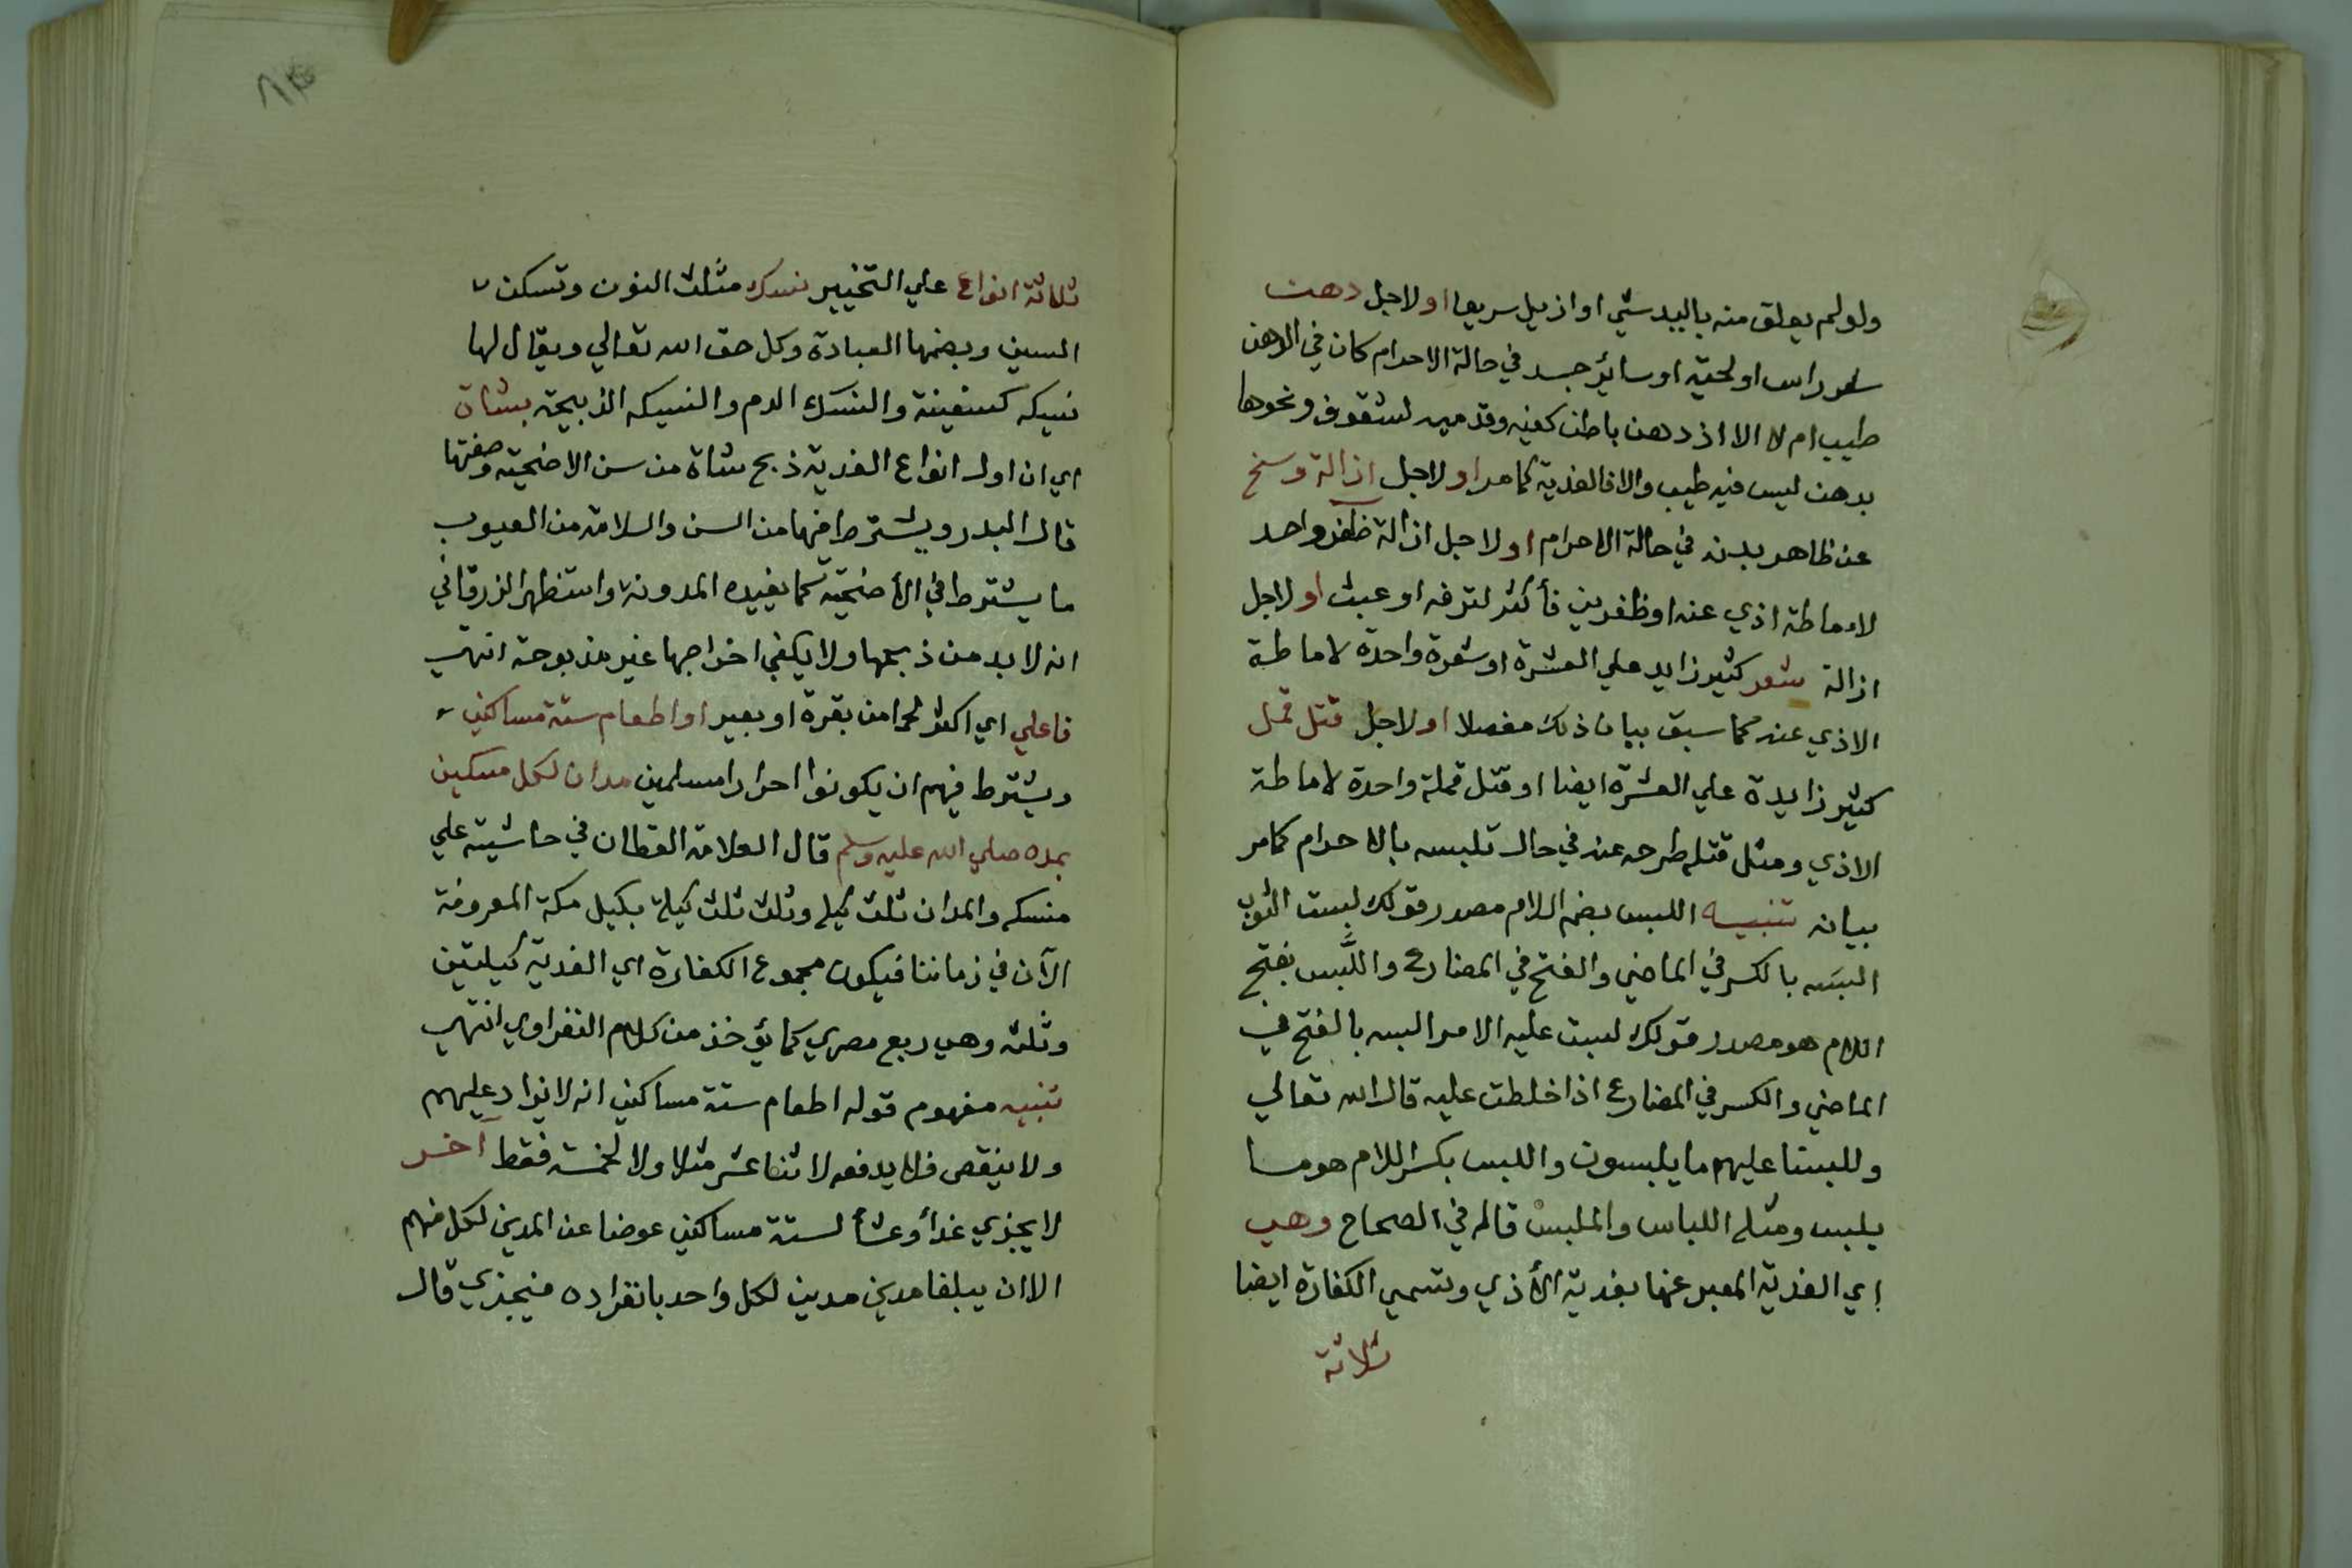 ولو لم يعلق منه باليد شئ او ازيل سريعا او لاجل دهن
شعر راس او لحية او سائر جسد في حالة الاحرام كان في الدهن
طيب ام لا الا اذ دهن باطن كفيه وقدميه لشقوق ونحوها
بدهن ليس فيه طيب والا فالفدية كما مر او لاجل ازالة وسخ
عن ظاهر بدنه في حالة الاحرام او لاجل ازالة ظفر واحد
لاماطة اذي عنه او ظفرين فأكثر لترفه او عبث او لاجل
ازالة شعر كثير زايد علي العشرة او شعرة واحدة لاماطة
الاذي عنه كما سبق بيان ذلك مفصلا او لاجل قتل قمل
كثير زايدة علي العشرة ايضا او قتل قملة واحدة لاماطة
الاذي ومثل قتله طرحه عنه في حال تلبسه بالاحرام كما مر
بيانه تنبيه اللبس بضم اللام مصدر قولك لبست الثوب
البسه بالكسر في الماضي والفتح في المضارع واللَّبس بفتح
اللام هو مصدر قولك لبست عليه الامر البسه بالفتح في
الماضي والكسر في المضارع اذا خلطت عليه قال الله تعالي
وللبسنا عليهم ما يلبسون واللبس بكسر اللام هو ما
يلبس ومثله اللباس والملبس قاله في الصحاح وهي
اي الفدية المعبر عنها بفدية الأذي وتسمي الكفارة ايضا
ثلاثة
ثلاثة انواع علي التخيير نسك مثلث النون وتسكن
السين وبضمها العبادة وكل حق الله تعالي ويقال لها
نسيكه كسفينة والنسك الدم والنسيكه الذبيحة بشاة
اي ان اول انواع الفدية ذبح شاة من سن الاضحية وصفتها
قال البدر ويشترط فيها من السن والسلامة من العيوب
ما يشترط في الأضحية كما يفيده المدونة واستظهر الزرقاني
انه لا بد من ذبحها ولا يكفي اخراجها غير مذبوحة انتهي
فاعلي اي اكثر لحما من بقرة او بعير او اطعام ستة مساكين
ويشترط فيهم ان يكونوا احرارا مسلمين مدان لكل مسكين
بمده صلي الله عليه وسلم قال العلامة القطان في حاشيته علي
منسكه والمدان ثلث كيلة وثلث ثلث كيلة بكيل مكة المعروفة
الآن في زماننا فيكون مجموع الكفارة اي الفدية كيلتين
وثلثه وهي ربع مصري كما يؤخذ من كلام النفراوي انتهي
تنبيه مفهوم قوله اطعام ستة مساكين انه لا يزاد عليهم
ولا ينقص فلا يدفعه لاثنا عشر مثلا ولا لخمسة فقط آخر
لا يجزي غدأ وعشأ لستة مساكين عوضا عن المدين لكل منهم
الا ان يبلغا مدين مدين لكل واحد بانفراده فيجزي قال